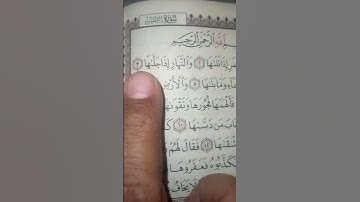 سُورَةُ الشَّمْسِ
ٱللَّهِ ٱلرَّحْمَٰنِ ٱلرَّحِيمِ
إِذَا تَلَىٰهَا ٢ وَٱلنَّهَارِ إِذَا جَلَّىٰهَا ٣
وَمَا بَنَىٰهَا ٥ وَٱلْأَرْضِ
فَأَلْهَمَهَا فُجُورَهَا وَتَقْوَىٰهَا
خَابَ مَن دَسَّىٰهَا ١٠
١٢ فَقَالَ لَهُمْ
فَكَذَّبُوهُ فَعَقَرُوهَا
وَلَا يَخَافُ